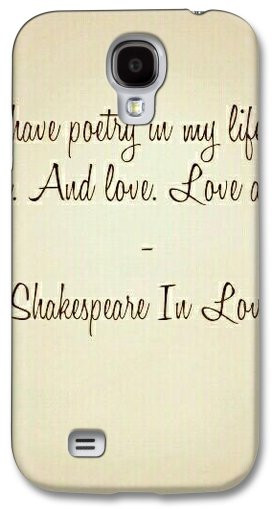 have poetry in my life
. And love. Love a
-
Shakespeare In Lov